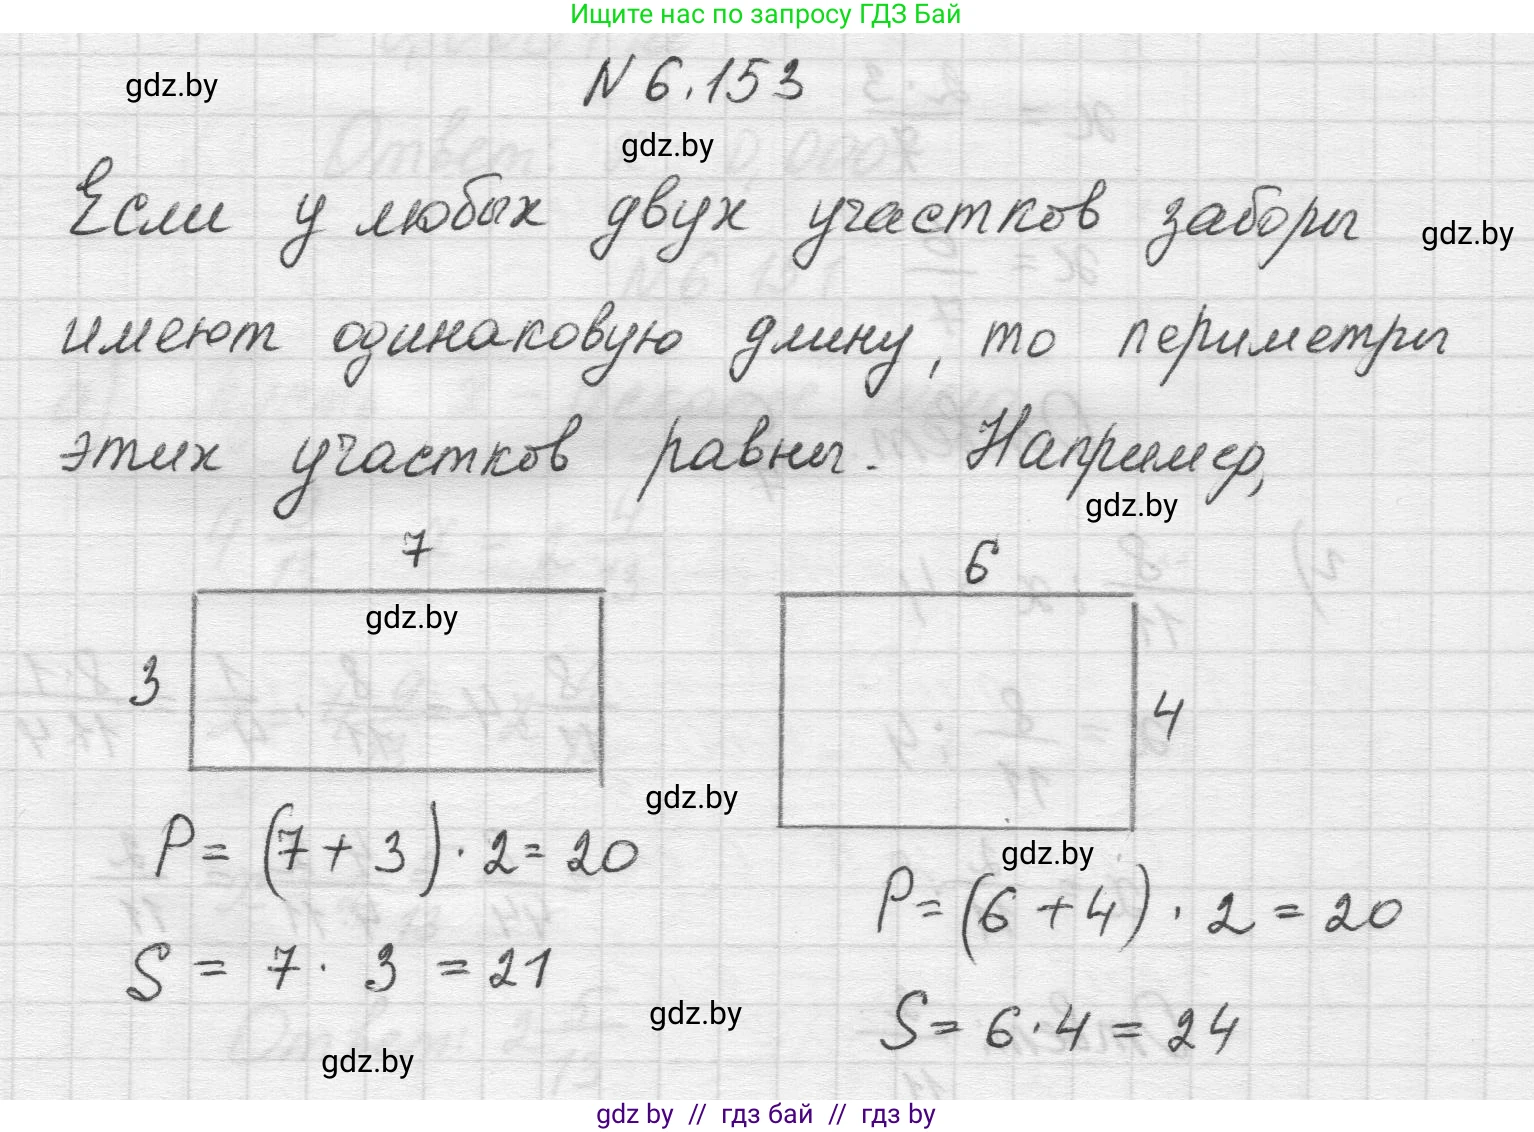 Ищите нас по запросу ГДЗ Бай
gdz.by
N 6.153
gdz.by
Если у любых двух участков заборы
gdz.by
имеют одинаковую длину, то периметры
этих участков равны. Например,
gdz.by
7
6
gdz.by
3
4
gdz.by
P = (7 + 3) · 2 = 20
gdz.by
P = (6 + 4) · 2 = 20
S = 7 · 3 = 21
gdz.by
S = 6 · 4 = 24
gdz.by
gdz by // гдз бай // гдз by